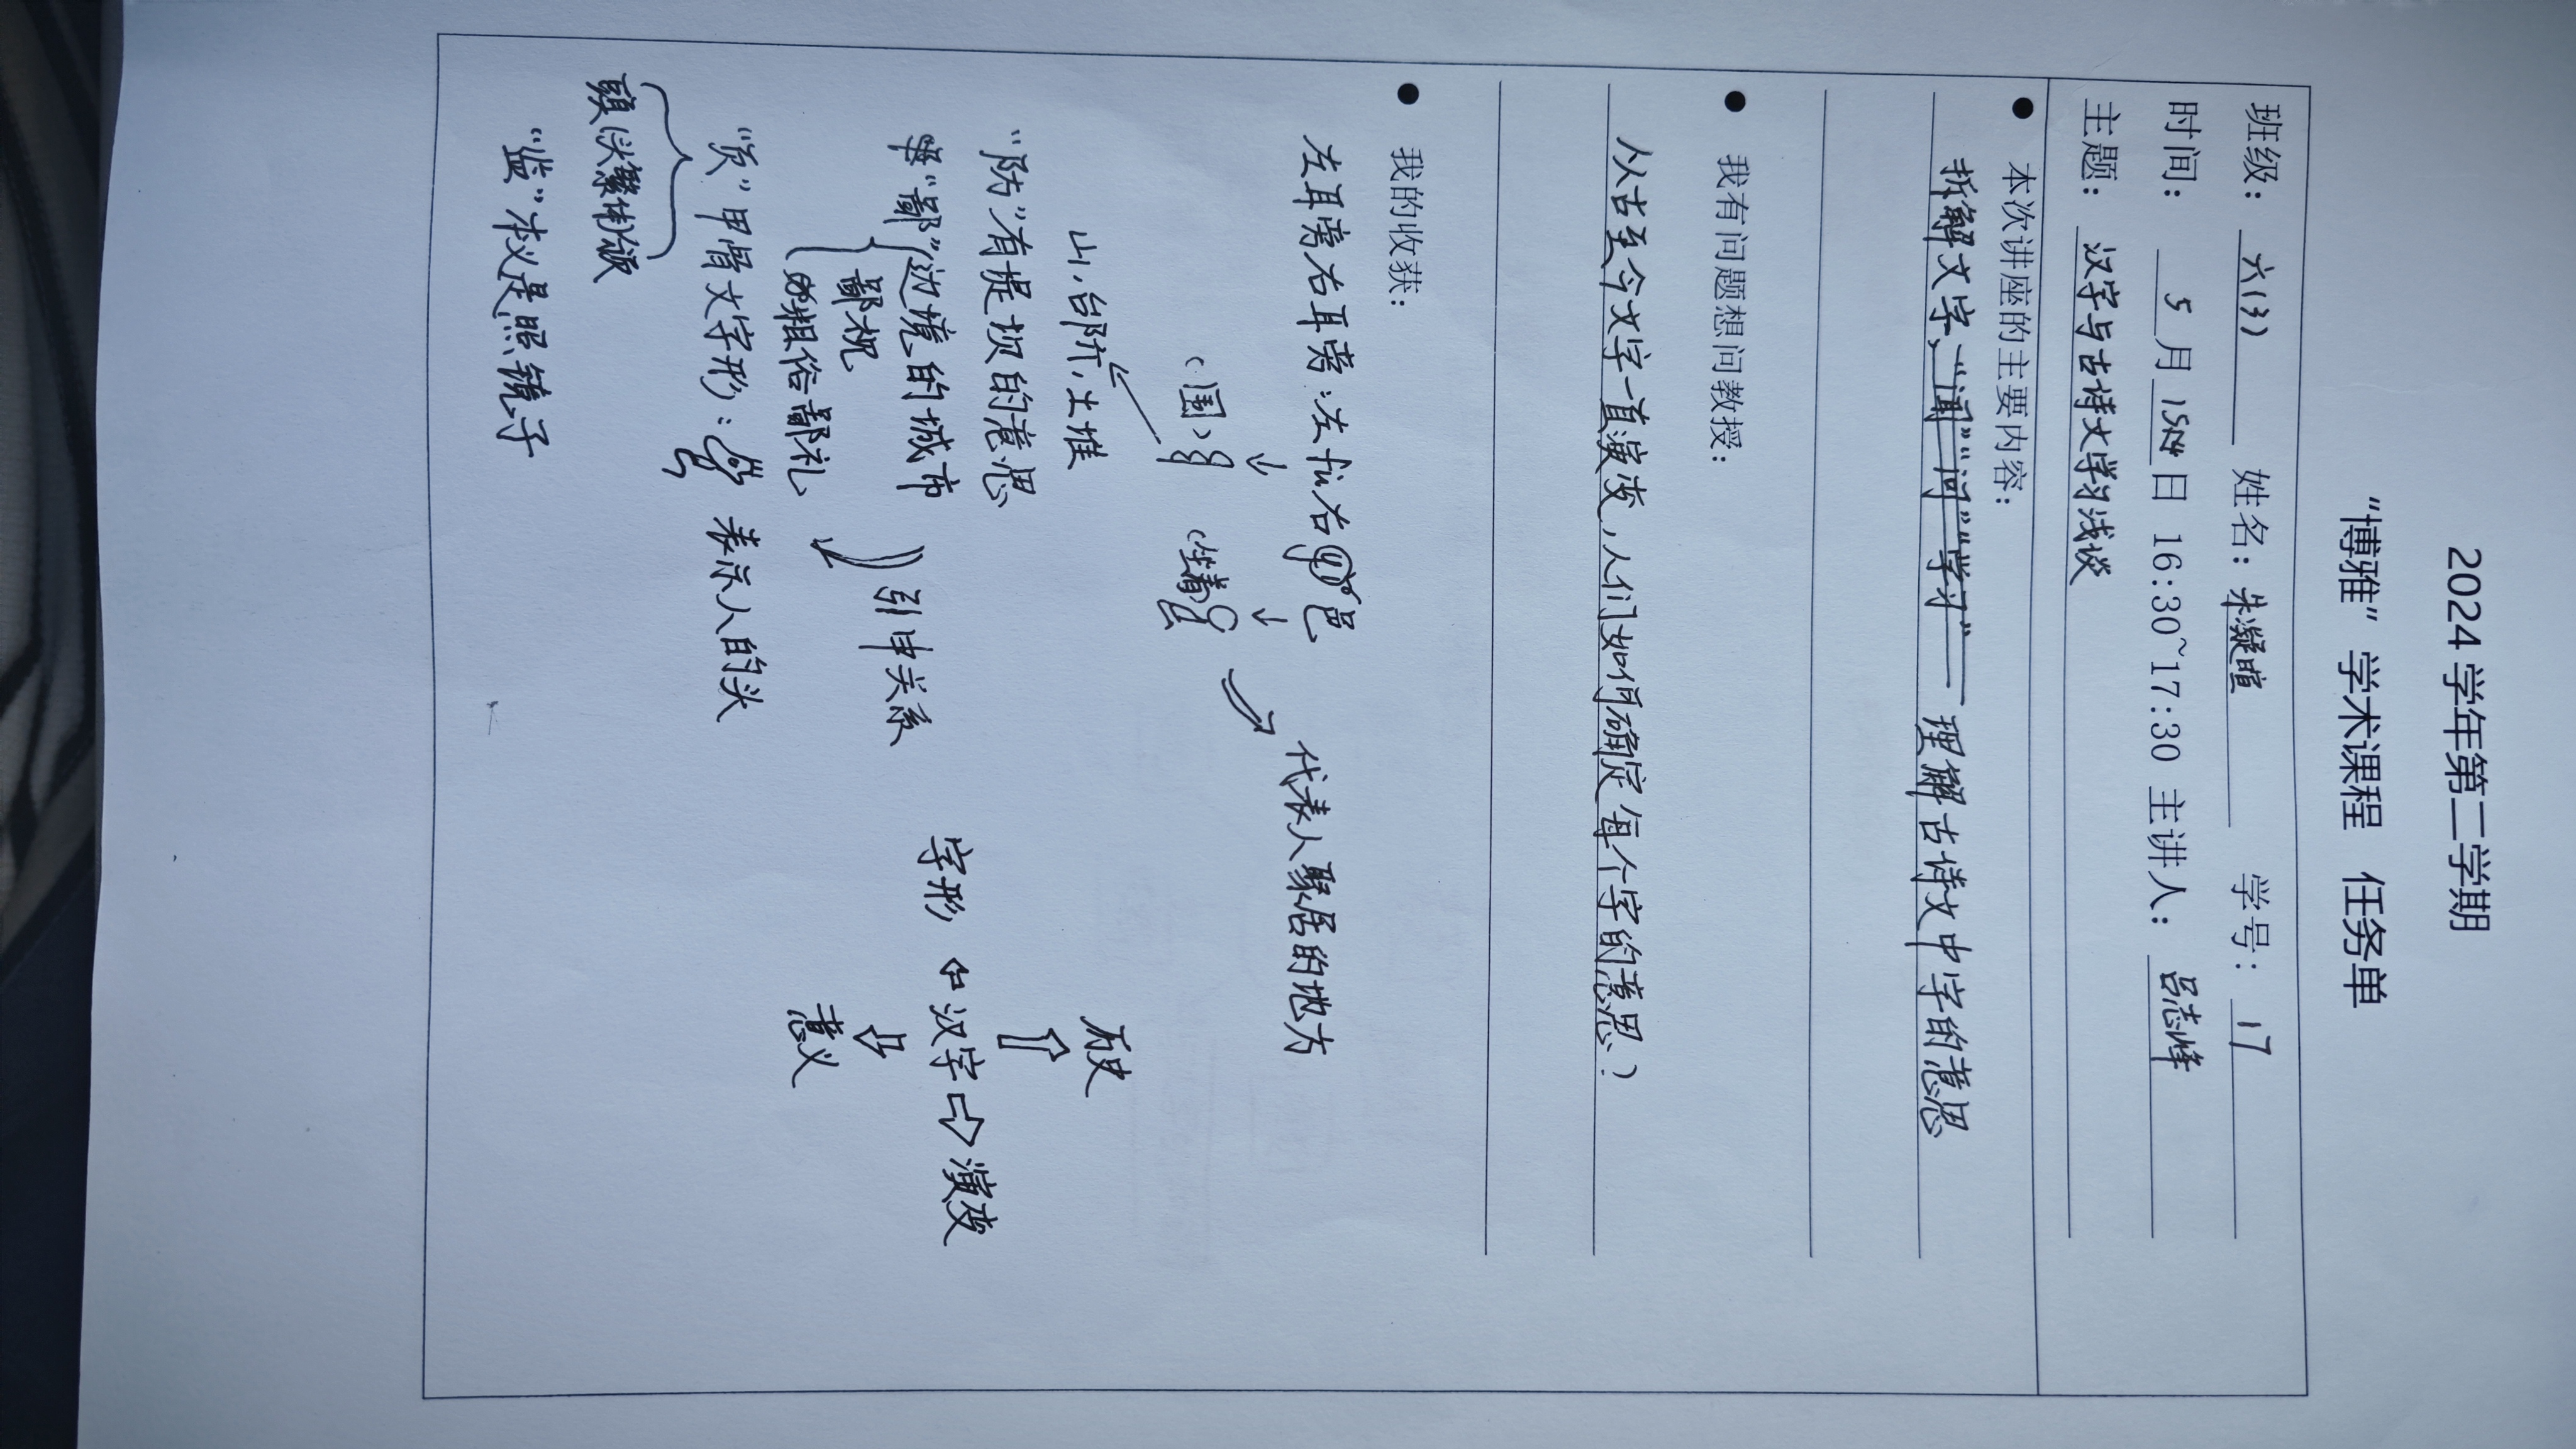 2024学年第二学期
“博雅” 学术课程 任务单
班级: 六(3) 姓名: 朱凝暄 学号: 17
时间: 5月15日 16:30~17:30 主讲人: 吕志峰
主题: 汉字与古诗文学习浅谈
● 本次讲座的主要内容:
拆解文字、“闻”“问”“学习” 理解古诗文中字的意思
● 我有问题想问教授:
从古至今文字一直演变,人们如何确定每个字的意思?
● 我的收获:
左耳旁右耳旁:左fu右邑
代表人聚居的地方
(围) (坐着)
山,台阶,土堆
历史
“防”有提坝的意思
“鄙”边境的城市
字形 ⇦ 汉字 ⇨ 演变
鄙视
粗俗鄙礼
引申关系
意义
“页”甲骨文字形: 表示人的头
頭(头繁体)颁
“监”本义是照镜子